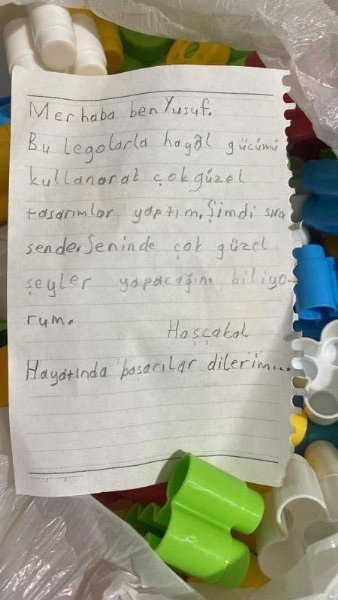 Merhaba ben Yusuf.
Bu legolarla hayâl gücümü
kullanarak çok güzel
tasarımlar yaptım. Şimdi sıra
sende. Seninde çok güzel
şeyler yapacağını biliyo-
rum.
Hoşçakal
Hayatında başarılar dilerim...